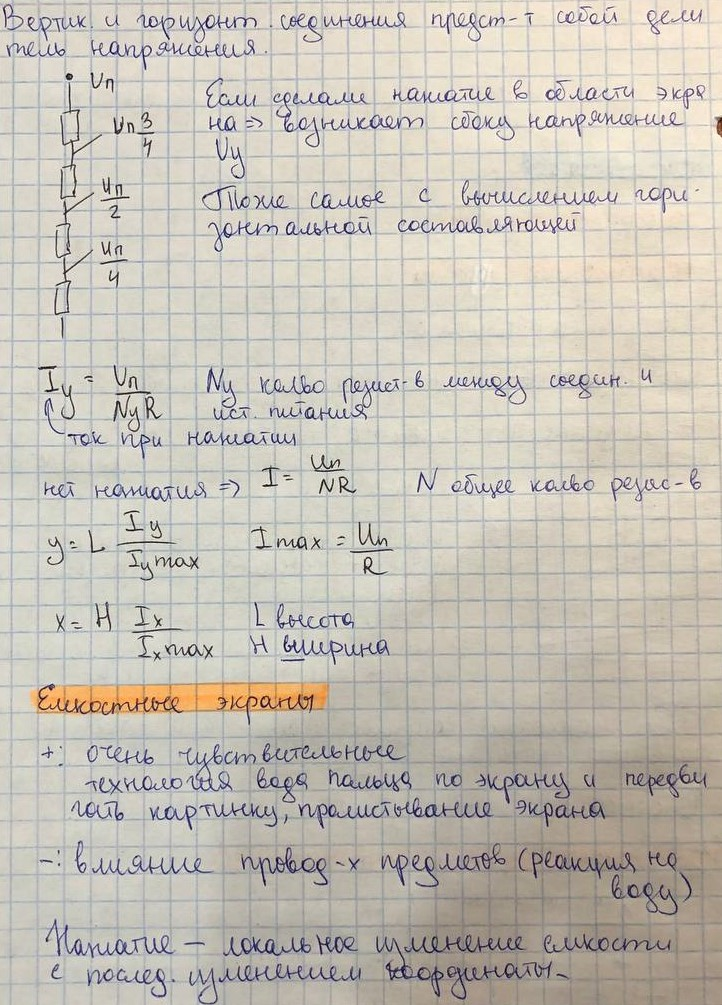 Вертик. и горизонт. соединения предст-т собой дели
тель напряжения.
Uп
Если сделали нажатие в области экра
Uп 3/4
на => возникает сбоку напряжение
Uy
Uп/2
Тоже самое с вычислением гори-
зонтальной составляющей
Uп/4
Iy = Uп/NyR Ny кол-во резист-в между соедин. и
ист. питания
ток при нажатии
нет нажатия => I = Uп/NR N общее кол-во резис-в
y = L Iy/Iymax Imax = Uп/R
x = H Ix/Ixmax L высота
H ширина
Емкостные экраны
+: очень чувствительные
технология вода пальца по экрану и передви
гать картинку, пролистывание экрана
-: влияние провод-х предметов (реакция на
воду)
Нажатие – локальное изменение емкости
с послед. изменением координаты-